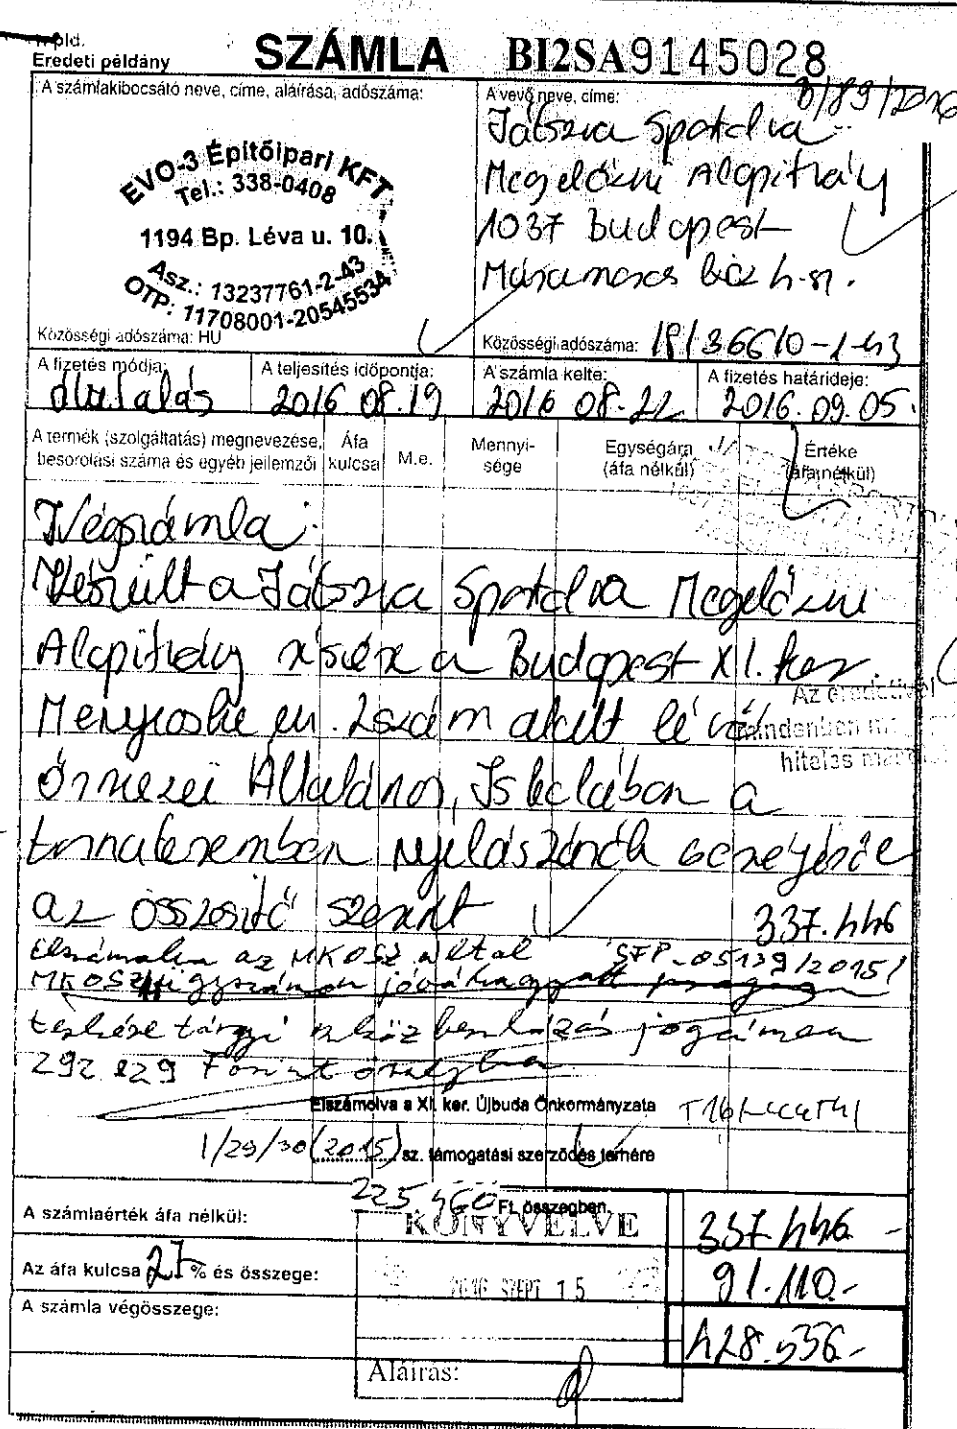 Eredeti példány
SZÁMLA BI2SA9145028
A számlakibocsátó neve, címe, aláírása, adószáma:
EVO-3 Építőipari KFT
Tel.: 338-0408
1194 Bp. Léva u. 10.
Asz.: 13237761-2-43
OTP: 11708001-20545534
Közösségi adószáma: HU
A vevő neve, címe:
Játszva Sportolva
Megelőzni Alapítvány
1037 Budapest
Közösségi adószáma: 18136610-1-43
A fizetés módja: átutalás
A teljesítés időpontja: 2016 08.19
A számla kelte: 2016 08.22
A fizetés határideje: 2016.09.05.
A termék (szolgáltatás) megnevezése, besorolási száma és egyéb jellemzői
Áfa kulcsa
M.e.
Mennyi-sége
Egységára (áfa nélkül)
Értéke (áfa nélkül)
Végszámla:
Készült a Játszva Sportolva Megelőzni
Alapítvány részére a Budapest XI. ker.
Menyecske u. 2 szám alatt lévő
Őrmezei Általános Iskolában a
tornateremben nyílászárók cseréjéről
az összesítő szerint 337.446
Elszámolva az MKOSZ által SFP-05139/2015/
MKOSZ ügyszámon jóváhagyott program
terhére tárgyi beruházás jogcímen
292 829 Forint összegben
Az eredetivel
mindenben
Elszámolva a XI. ker. Újbuda Önkormányzata
1/29/30 (2015) sz. támogatási szerződés terhére
225 460 Ft. összegben.
A számlaérték áfa nélkül: 337.446 -
KÖNYVELVE
Az áfa kulcsa 27 % és összege: 91.110.-
2016 SZEPT 15
A számla végösszege: 428.556.-
Aláírás: